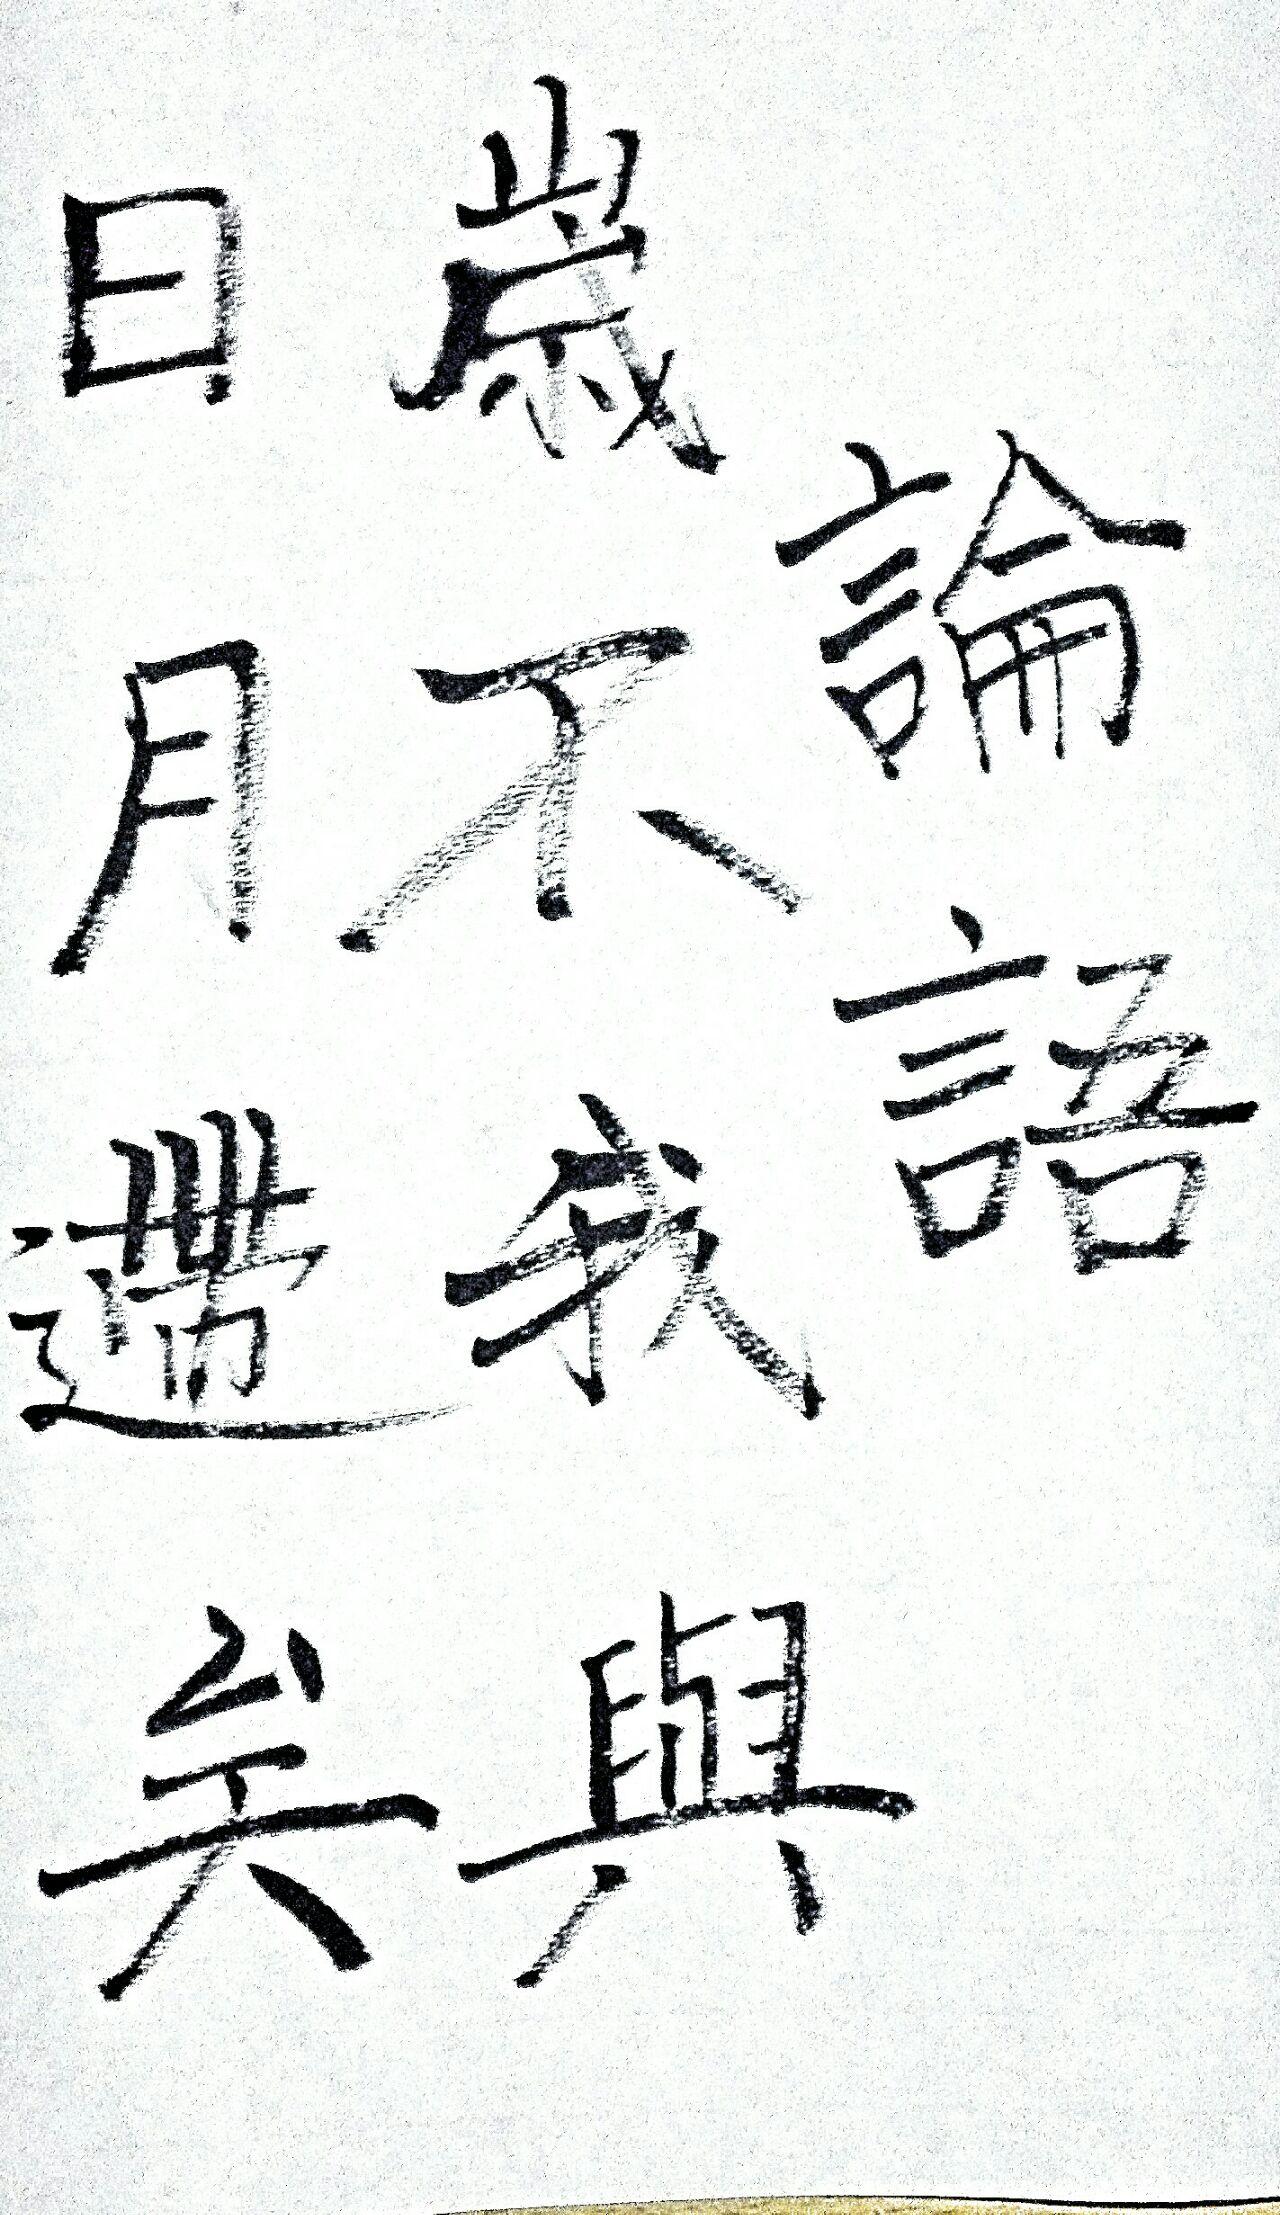 論語
歳不我與
日月遰矣